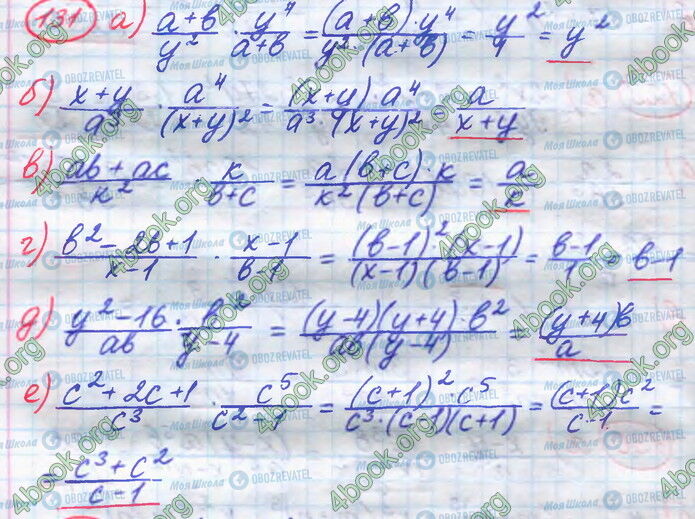 131 а) (a+b)/y² · y⁴/(a+b) = (a+b)·y⁴/(y²·(a+b)) = y²/1 = y²
б) (x+y)/a³ · a⁴/(x+y)² = (x+y)·a⁴/(a³·(x+y)²) = a/(x+y)
в) (ab+ac)/k² · k/(b+c) = a(b+c)·k/(k²(b+c)) = a/k
г) (b²-2b+1)/(x-1) · (x-1)/(b-1) = (b-1)²(x-1)/((x-1)(b-1)) = (b-1)/1 = b-1
д) (y²-16)/ab · b²/(y-4) = (y-4)(y+4)·b²/(ab(y-4)) = (y+4)b/a
е) (c²+2c+1)/c³ · c⁵/(c²-1) = (c+1)²·c⁵/(c³·(c-1)(c+1)) = (c+1)c²/(c-1) =
= (c³+c²)/(c-1)
4book.org
МояШкола
OBOZREVATEL